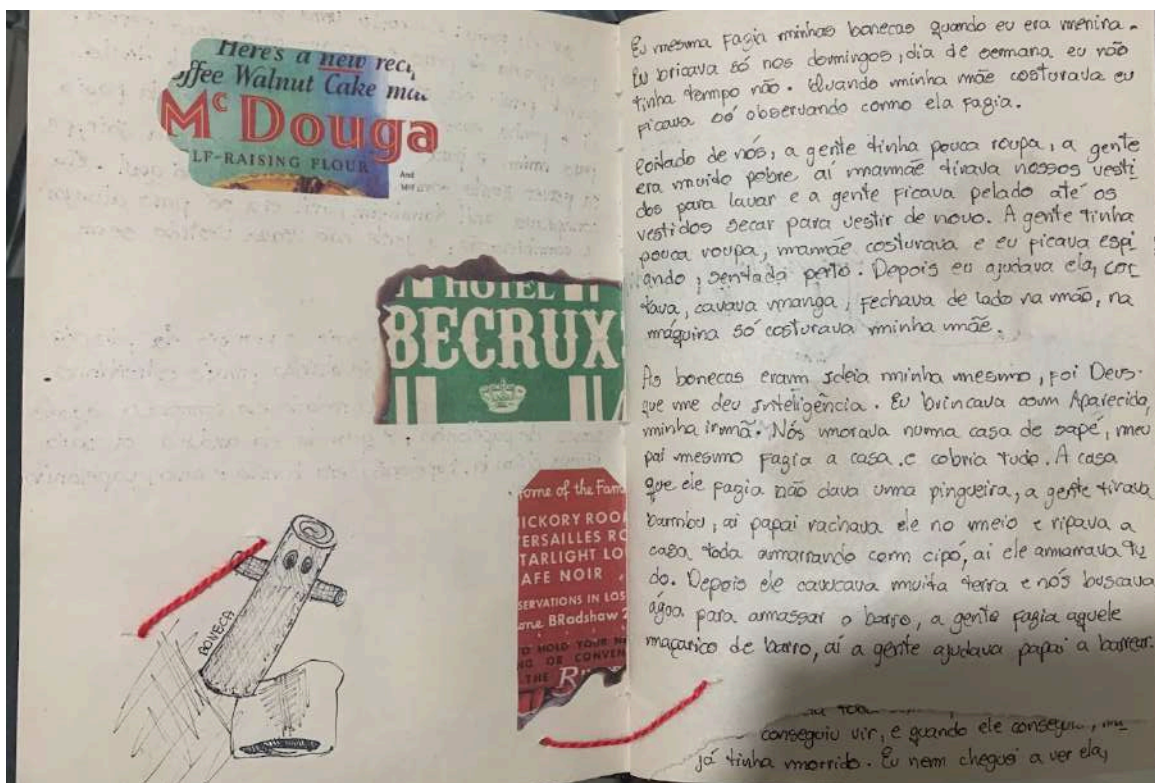 Here's a new reci
offee Walnut Cake ma
McDouga
LF-RAISING FLOUR
And
HOTEL
BECRUX
ome of the Fam
ICKORY ROO
ERSAILLES RO
TARLIGHT LO
AFE NOIR
SERVATIONS IN LOS
one BRadshaw 2
O HOLD YOUR
NG OR CONVEN
THE
BONECA
Eu mesma fazia minhas bonecas quando eu era menina.
Eu bricava só nos domingos, dia de semana eu não
tinha tempo não. Quando minha mãe costurava eu
ficava só observando como ela fazia.
Coitado de nós, a gente tinha pouca roupa, a gente
era muido pobre aí mamãe tirava nossos vesti
dos para lavar e a gente ficava pelado até os
vestidos secar para vestir de novo. A gente tinha
pouca roupa, mamãe costurava e eu ficava espi
ando, sentada perto. Depois eu ajudava ela, cor
tava, cavava manga, fechava de lado na mão, na
máquina só costurava minha mãe.
As bonecas eram ideia minha mesmo, foi Deus
que me deu inteligência. Eu brincava com Aparecida,
minha irmã. Nós morava numa casa de sapé, meu
pai mesmo fazia a casa e cobria tudo. A casa
que ele fazia não dava uma pingueira, a gente tirava
bambu, aí papai rachava ele no meio e ripava a
casa toda amarrando com cipó, aí ele amarrava tu
do. Depois ele cavucava muita terra e nós buscava
água para amassar o barro, a gente fazia aquele
maçarico de barro, aí a gente ajudava papai a barrear.
conseguiu vir, e quando ele conseguiu,
já tinha morrido. Eu nem cheguei a ver ela,